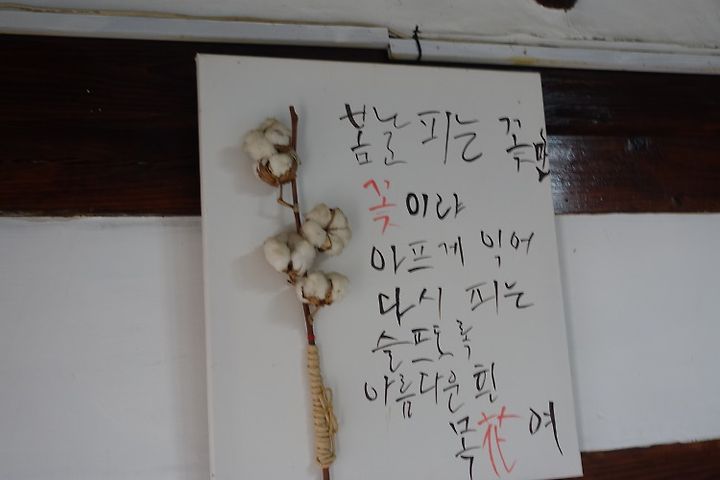 봄날 피는 꽃만
꽃이랴
아프게 익어
다시 피는
슬프도록
아름다운 흰
목花여